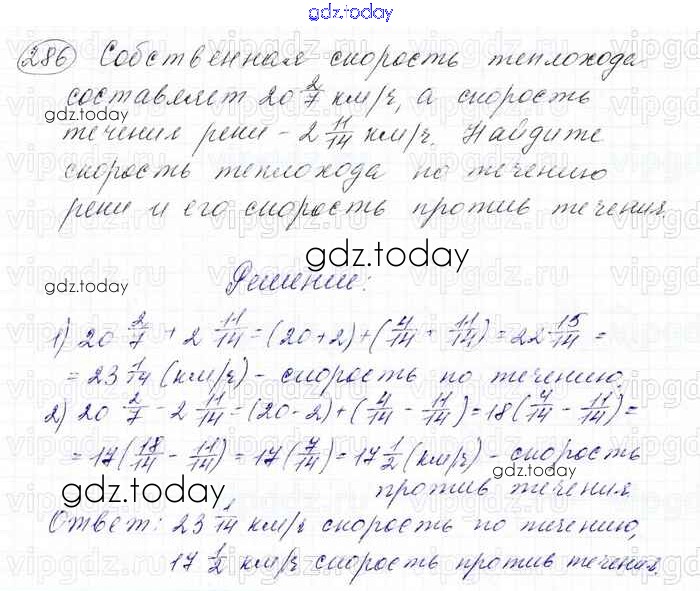 gdz.today
286 Собственная скорость теплохода
составляет 20 2/7 км/ч, а скорость
течения реки - 2 11/14 км/ч. Найдите
скорость теплохода по течению
реки и его скорость против течения.
gdz.today
gdz.today
gdz.today
Решение:
1) 20 2/7 + 2 11/14 = (20+2)+(4/14 + 11/14) = 22 15/14 =
= 23 1/14 (км/ч) - скорость по течению.
2) 20 2/7 - 2 11/14 = (20-2)+(4/14 - 11/14) = 18(4/14 - 11/14) =
= 17(18/14 - 11/14) = 17(7/14) = 17 1/2 (км/ч) - скорость
против течения
gdz.today
gdz.today
Ответ: 23 1/14 км/ч скорость по течению,
17 1/2 км/ч скорость против течения.